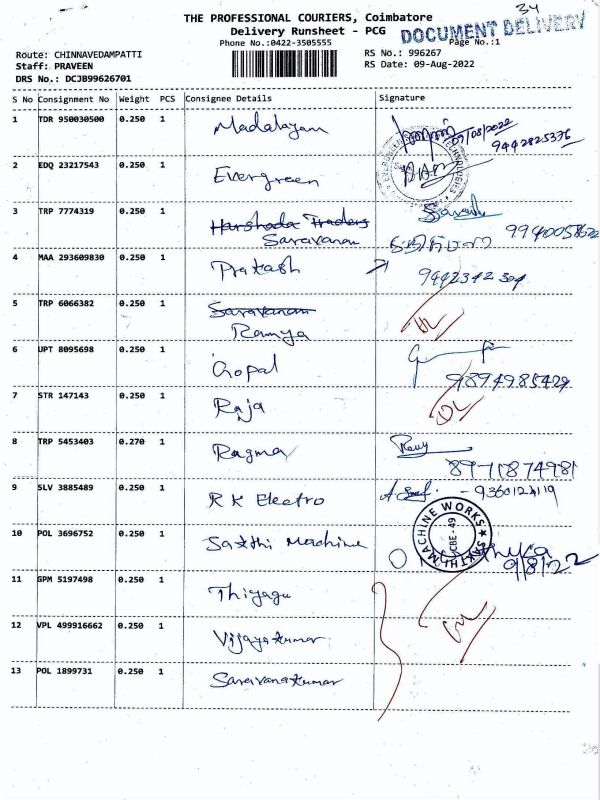 34
THE PROFESSIONAL COURIERS, Coimbatore
DOCUMENT DELIVERY
Delivery Runsheet - PCG
Phone No.:0422-3505555
Page No.:1
Route: CHINNAVEDAMPATTI
RS No.: 996267
Staff: PRAVEEN
RS Date: 09-Aug-2022
DRS No.: DCJB99626701
S No Consignment No Weight PCS Consignee Details Signature
1 TDR 950030500 0.250 1 Madalayam 09/08/2022 9442825376
2 EDQ 23217543 0.250 1 Evergreen
3 TRP 7774319 0.250 1 Harshada Traders
Saravanan
4 MAA 293609830 0.250 1 Prakash 9442342304
5 TRP 6066382 0.250 1 Saravanan DL
Ramya
6 UPT 8095698 0.250 1 Gopal 9894985429
7 STR 147143 0.250 1 Raja DL
8 TRP 5453403 0.270 1 Ragma 8971874981
9 SLV 3885489 0.250 1 R K Electro - 9360124119
10 POL 3696752 0.250 1 Sakthi Machine 9/8/22
SAKTHI MACHINE WORKS
CBE-49
11 GPM 5197498 0.250 1 Thiyagu
12 VPL 499916662 0.250 1 Vijayakumar DL
13 POL 1899731 0.250 1 Saravanakumar